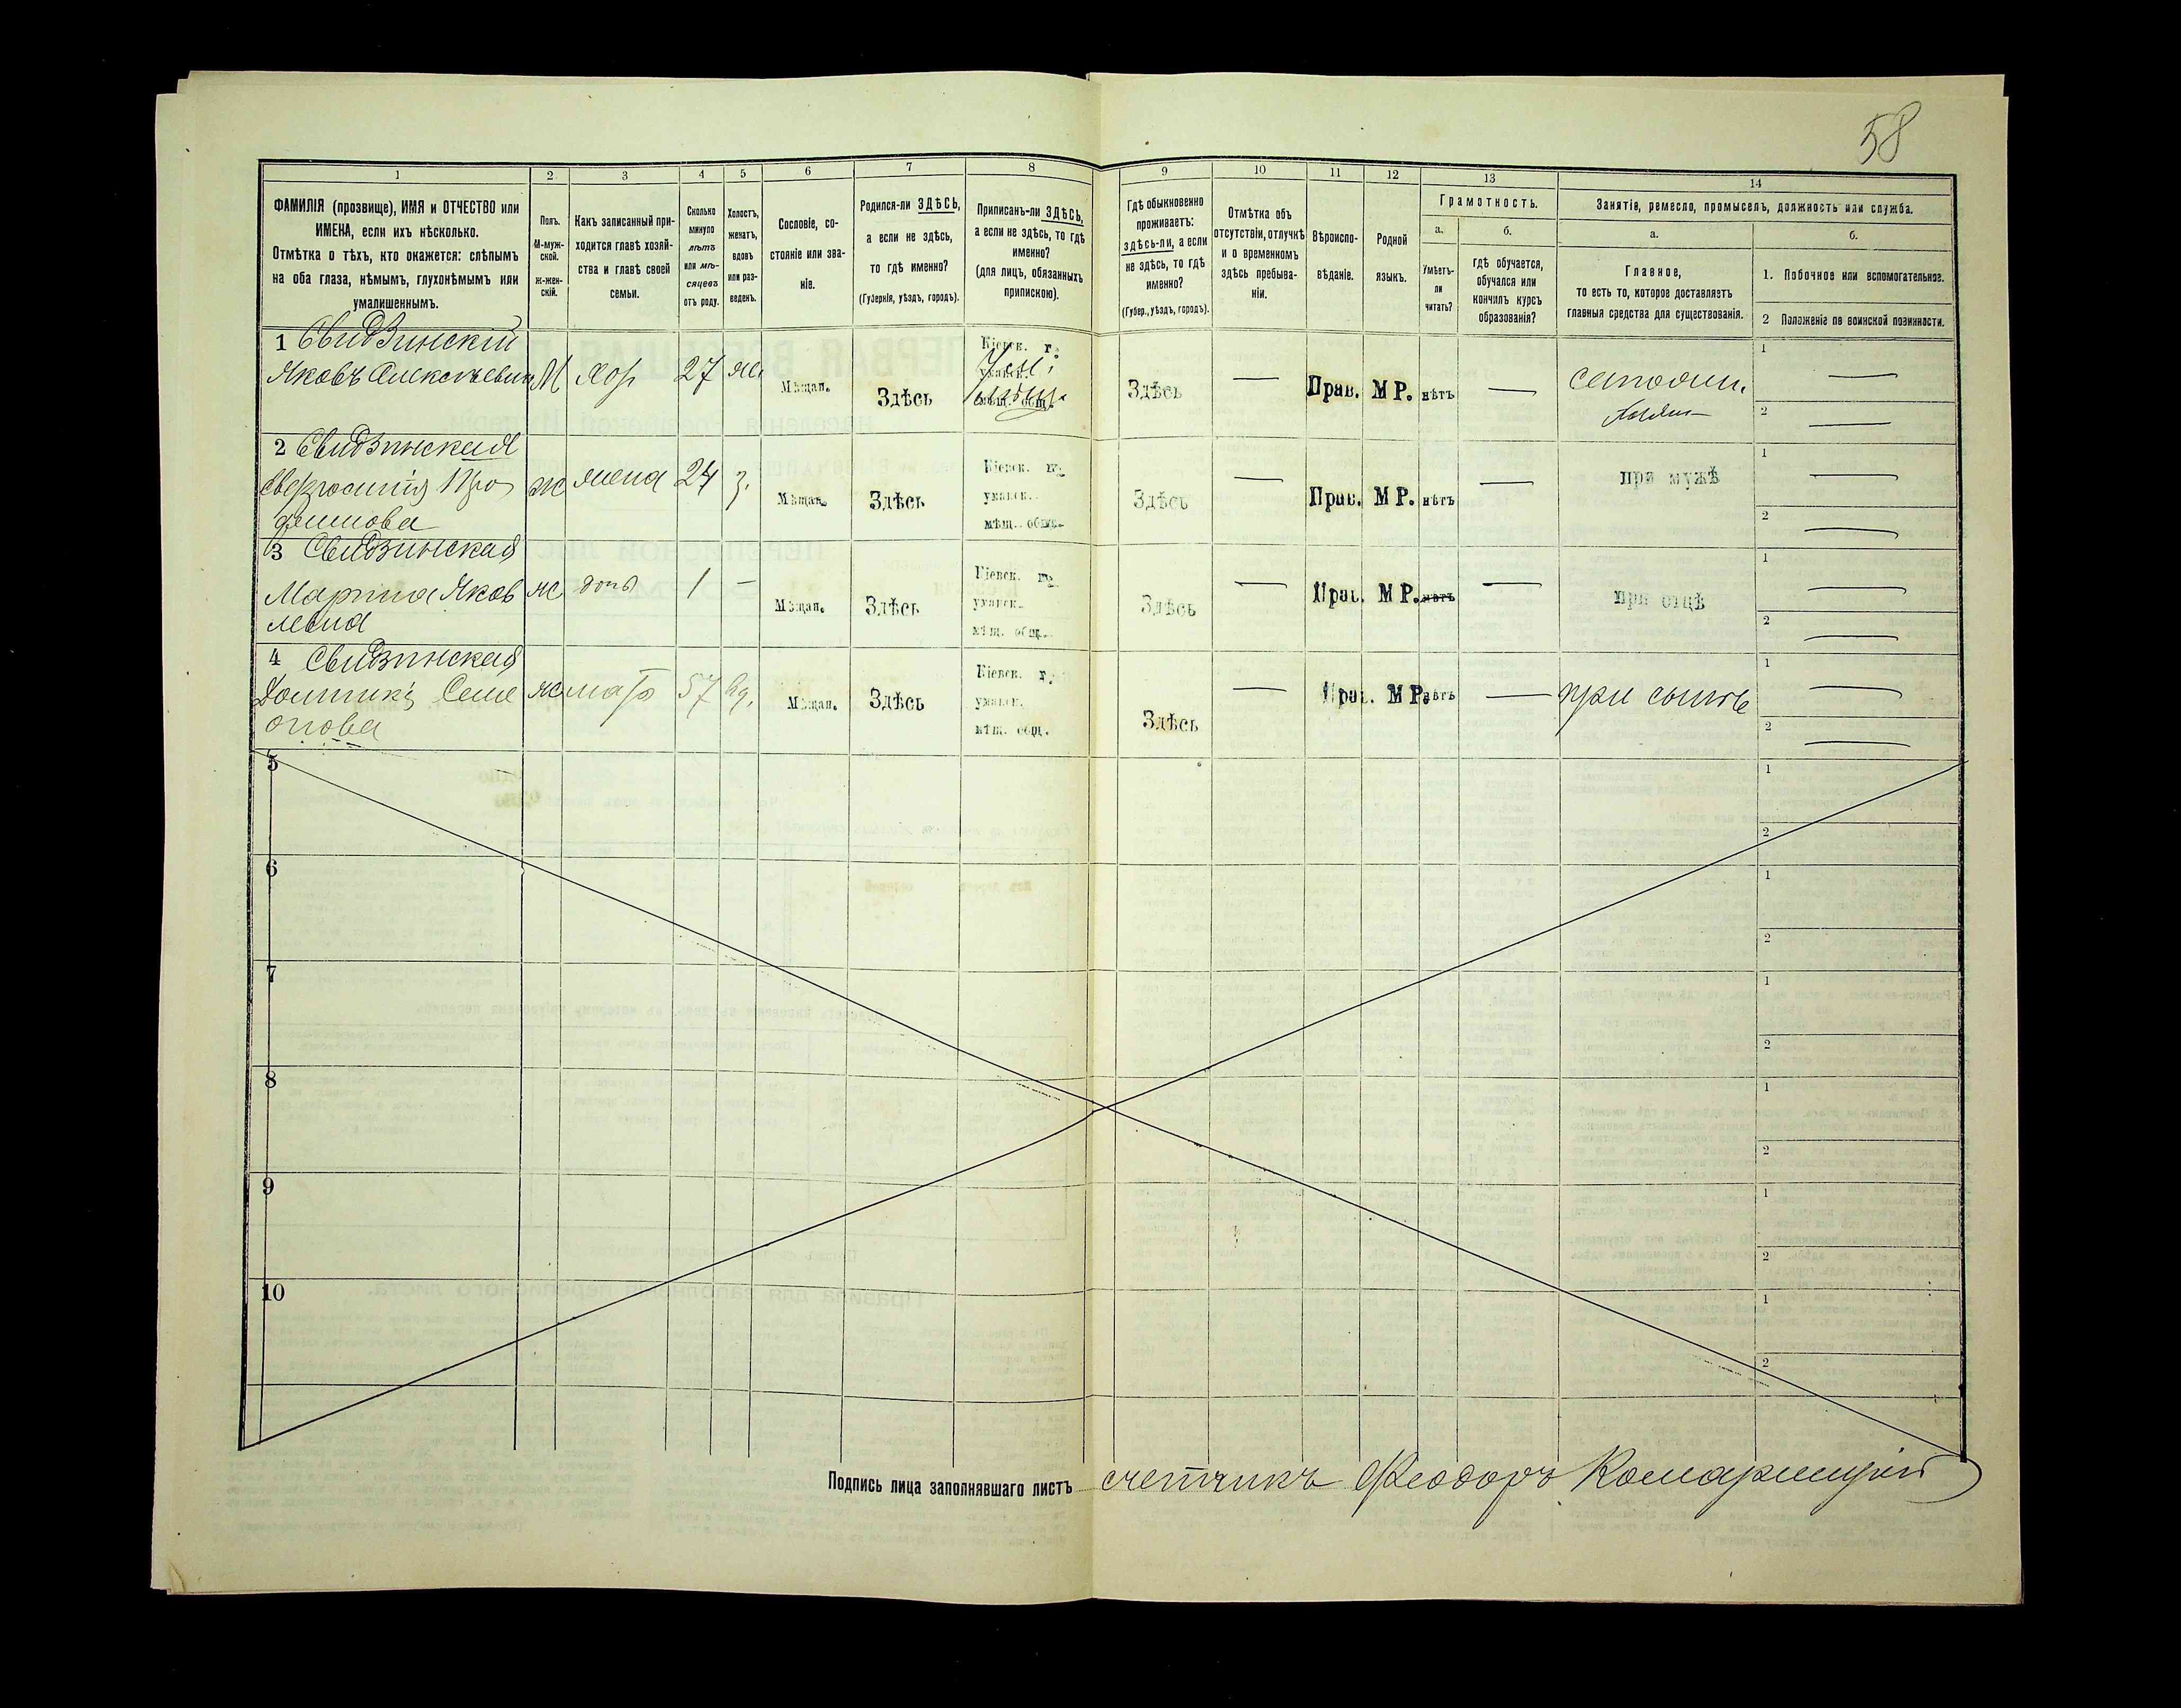 58
1 2 3 4 5 6 7 8 9 10 11 12 13 14
ФАМИЛІЯ (прозвище), ИМЯ и ОТЧЕСТВО или
ИМЕНА, если ихъ нѣсколько.
Отмѣтка о тѣхъ, кто окажется: слѣпымъ
на оба глаза, нѣмымъ, глухонѣмымъ или
умалишеннымъ.
Полъ.
М-муж-
ской.
Ж-жен-
скій.
Какъ записанный при-
ходится главѣ хозяй-
ства и главѣ своей
семьи.
Сколько
минуло
лѣтъ
или мѣ-
сяцевъ
отъ роду.
Холостъ,
женатъ,
вдовъ
или раз-
веденъ.
Сословіе, со-
стояніе или зва-
ніе.
Родился-ли ЗДѢСЬ,
а если не здѣсь,
то гдѣ именно?
(Губернія, уѣздъ, городъ).
Приписанъ-ли ЗДѢСЬ,
а если не здѣсь, то гдѣ
именно?
(для лицъ, обязанныхъ
припискою).
Гдѣ обыкновенно
проживаетъ:
здѣсь-ли, а если
не здѣсь, то гдѣ
именно?
(Губер., уѣздъ, городъ).
Отмѣтка объ
отсутствіи, отлучкѣ
и о временномъ
здѣсь пребыва-
ніи.
Вѣроиспо-
вѣданіе.
Родной
языкъ.
Грамотность.
а.
Умѣетъ-
ли
читать?
б.
гдѣ обучается,
обучался или
кончилъ курсъ
образованія?
Занятіе, ремесло, промыселъ, должность или служба.
а.
Главное,
то есть то, которое доставляетъ
главныя средства для существованія.
б.
1. Побочное или вспомогательное.
2 Положеніе по воинской повинности.
1 Свидзинскій
Яковъ Алексѣевич М хоз 27 же Мѣщан. Здѣсь
Кіевск. г.
уманск.
мѣщ. общ.
Здѣсь — Прав. М Р. нѣтъ — 1 —
2 —
2 Свидзинская
Ж жена 24 з. Мѣщан. Здѣсь
Кіевск. г.
уманск.
мѣщ. общ.
Здѣсь — Прав. М Р. нѣтъ — при мужѣ 1 —
2 —
3 Свидзинская
Марина Яков
левна
ж дочь 1 — Мѣщан. Здѣсь
Кіевск. г.
уманск.
мѣщ. общ.
Здѣсь — Прав. М Р. нѣтъ — при отцѣ 1 —
2 —
4 Свидзинская
Семе
онова
ж мать 57 вд. Мѣщан. Здѣсь
Кіевск. г.
уманск.
мѣщ. общ.
Здѣсь — Прав. М Р. нѣтъ — при сынѣ 1 —
2 —
5 1
2
6 1
2
7 1
2
8 1
2
9 1
2
10 1
2
Подпись лица заполнявшаго листъ счетчикъ Феодоръ Комарницкій